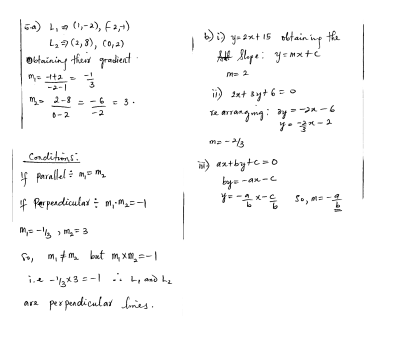 5.a) L₁ ⇒ (1,-2), (-2,-1)
L₂ ⇒ (2,8), (0,2)
Obtaining their gradient
m₁ = -1+2/-2-1 = -1/3
m₂ = 2-8/0-2 = -6/-2 = 3.
Conditions:
If parallel ÷ m₁=m₂
If Perpendicular ÷ m₁.m₂=-1
m₁=-1/3, m₂=3
So, m₁≠m₂ but m₁×m₂=-1
i.e -1/3×3=-1 ∴ L₁ and L₂
are perpendicular lines.
b) i) y=2x+15 obtaining the
Slope: y=mx+c
m=2
ii) 2x+3y+6=0
rearranging: 3y=-2x-6
y=-2/3x-2
m=-2/3
iii) ax+by+c=0
by=-ax-c
y=-a/b x-c/b So, m=-a/b